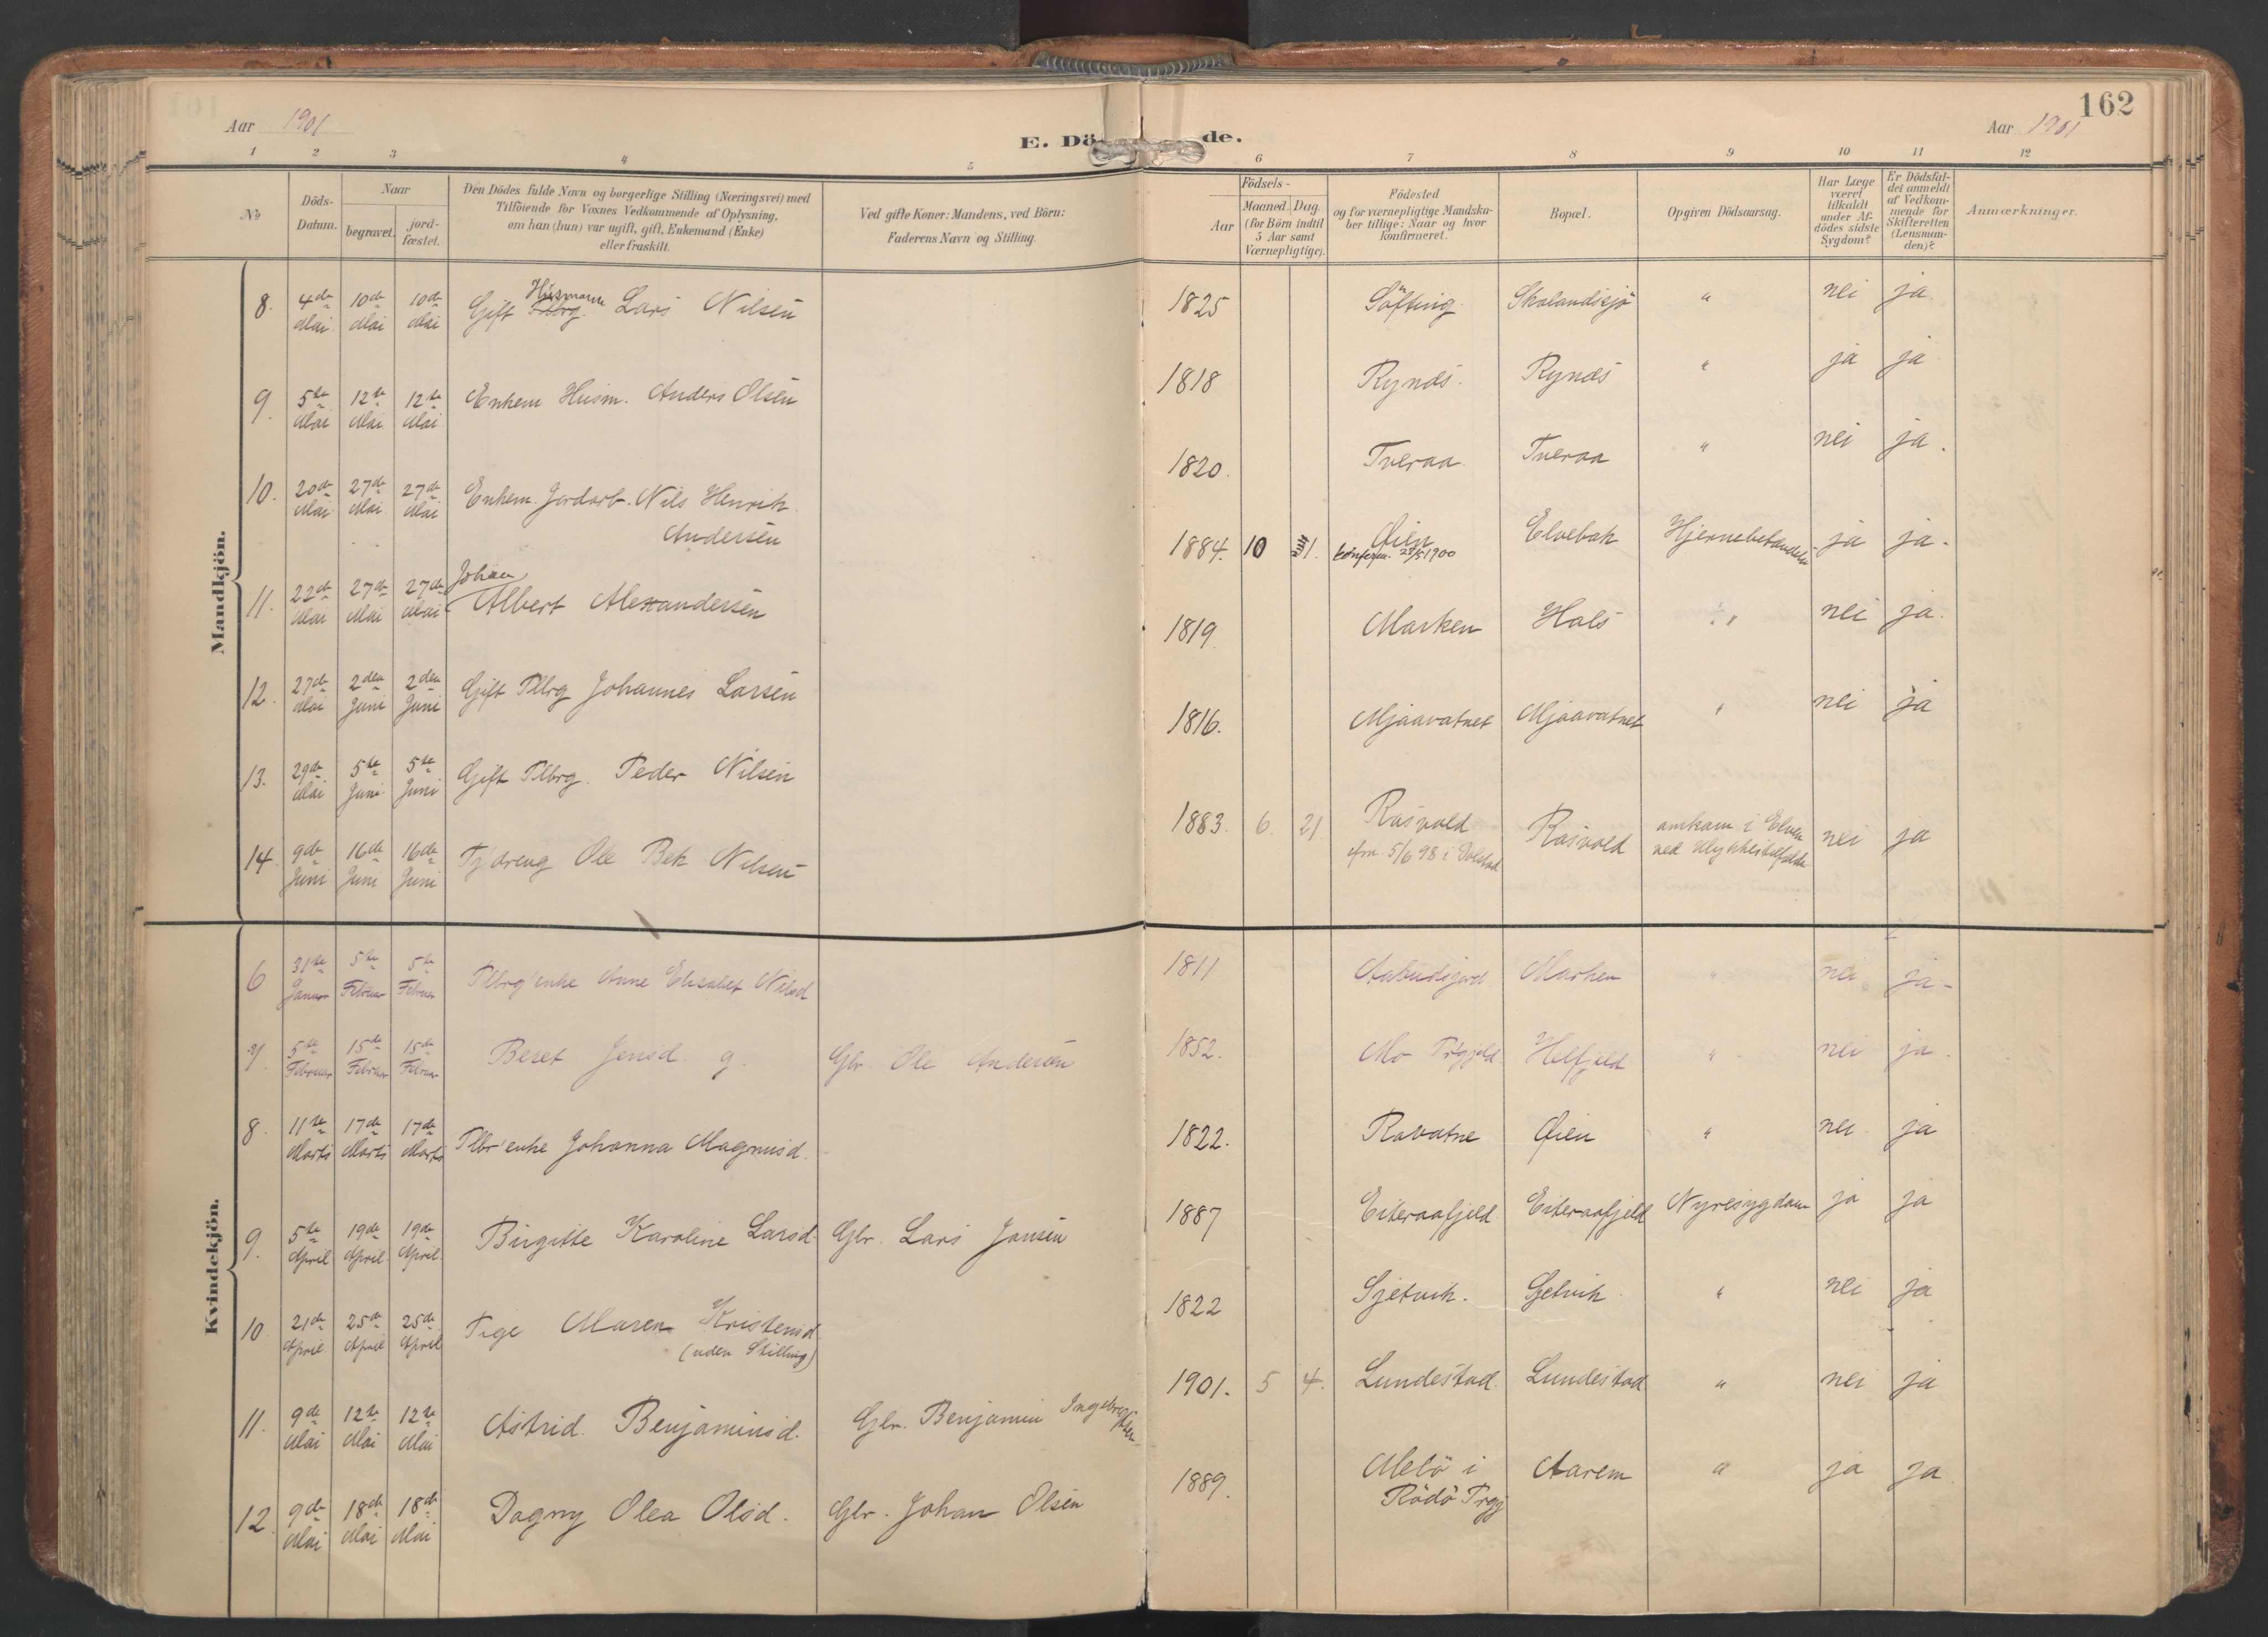 162
Aar 1901
E. Dö
de.
Aar 1901
1 2 3 4 5 6 7 8 9 10 11 12
№
Döds-
Datum.
Naar
begravet.
jord-
fæstet.
Den Dödes fulde Navn og borgerlige Stilling (Næringsvei) med
Tilföiende for Voxnes Vedkommende af Oplysning,
om han (hun) var ugift, gift, Enkemand (Enke)
eller fraskilt.
Ved gifte Koner: Mandens, ved Börn:
Faderens Navn og Stilling.
Födsels-
Aar
Maaned. Dag.
(for Börn indtil
5 Aar samt
Værnepligtige).
Födested
og for værnepligtige Mandska-
ber tillige: Naar og hvor
konfirmeret.
Bopæl.
Opgiven Dödsaarsag.
Har Læge
været
tilkaldt
under Af-
dödes sidste
Sygdom?
Er Dödsfal-
det anmeldt
af Vedkom-
mende for
Skifteretten
(Lensman-
den)?
Anmærkninger.
Mandkjön.
8. 4de Mai 10de Mai 10de Mai Gift Husmann Lars Nilsen 1825 Söfting Skalandsjö " nei ja
9. 5te Mai 12te Mai 12te Mai Enkem Husm. Anders Olsen 1818 Rynds. Rynds " ja ja
10. 20de Mai 27de Mai 27de Mai Enkem. Jordarb. Nils Henrik
Andersen 1820. Tveraa Tveraa " nei ja.
11. 22de Mai 27de Mai 27de Mai Johan
Albert Alexandersen 1884. 10 1. Øien
28/5 1900 Elvebak ja ja.
12. 27de Mai 2den Juni 2den Juni Gift Pllbrg Johannes Larsen 1819 Marken Hals " nei ja.
13. 29de Mai 5te Juni 5te Juni Gift Pllbrg. Peder Nilsen 1816. Mjaavatnet Mjaavatnet " nei ja
14. 9de Juni 16de Juni 16de Juni Tj dreng Ole Bek Nilsen 1883. 6. 21 Rösvold
5/6 98 i Dolstad Rösvold omkom i Elven
ved Ulykkestilfælde nei ja
Kvindekjön.
6 31te Januar 5te Februar 5te Februar Pllbrg'enke Anne Elisabet Nilsd 1811 Marken " nei ja
7. 5te Februar 15de Februar 15de Februar Beret Jensd. g. Gbr. Ole Andersen 1852. Mo Prgjeld Helfjeld " nei ja.
8. 11te Marts 17de Marts 17de Marts Pllbr'enke Johanna Magnusd. 1822. Ravatne Øien " nei ja
9. 5te April 19de April 19de April Birgitte Karoline Larsd. Gbr. Lars Jansen 1887 Eiteraafjeld Eiteraafjeld Nyresygdom ja ja
10 21de April 25de April 25de April Pige Maren Kristensd.
(uden Stilling) 1822 Sjetvik. Sjetvik " nei ja
11. 9de Mai 12te Mai 12te Mai Astrid Benjaminsd. Gbr. Benjamin Ingebrigtsen 1901. 5 4. Lundestad Lundestad " nei ja
12. 9de Mai 18de Mai 18de Mai Dagny Olea Olsd. Gbr. Johan Olsen 1889. Melö i
Rödö Prgj Aarem " ja ja